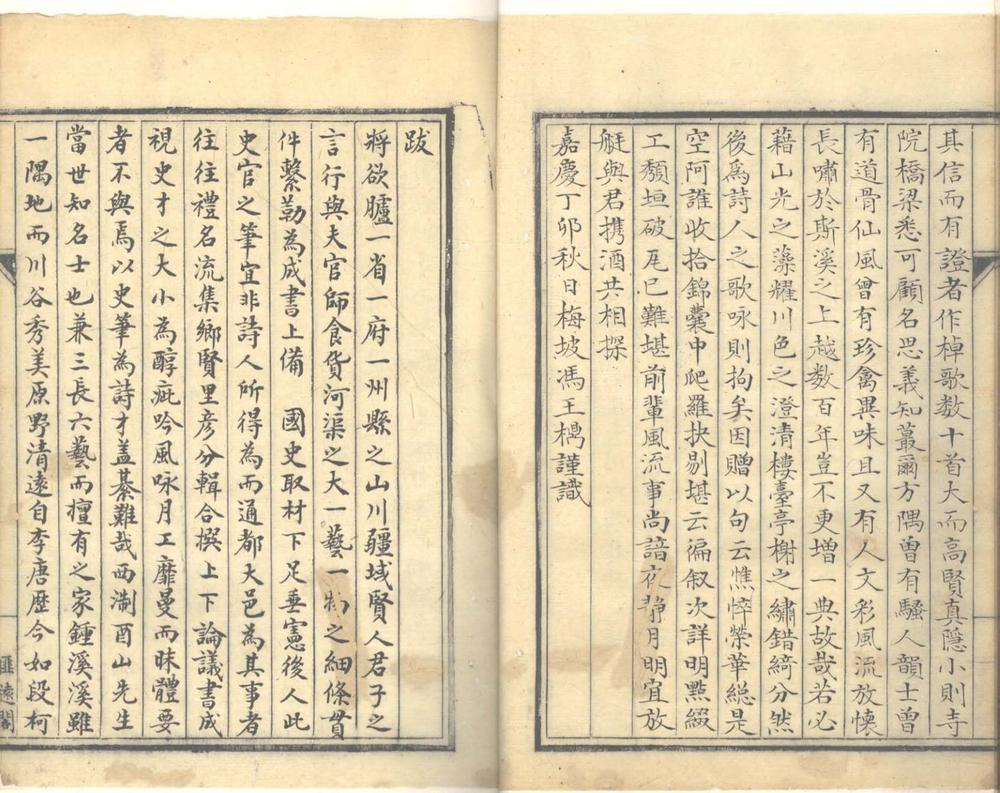 其信而有證者作棹歌数十首大而高賢真隱小則寺
院橋梁悉可顧名思義知蕞爾方隅曾有騷人韻士曾
有道骨仙風曾有珍禽異味且又有人文彩風流放懷
長嘯於斯溪之上越数百年豈不更增一典故哉若必
藉山光之藻耀川色之澄清樓臺亭榭之繡錯綺分然
後爲詩人之歌咏則拘矣因贈以句云憔悴榮華総是
空阿誰收拾錦囊中爬羅抉剔堪云徧叙次詳明點綴
工頽垣破瓦已難堪前輩風流事尚諳夜静月明宜放
艇與君攜酒共相探
嘉慶丁卯秋日梅坡馮王楀謹識
跋
將欲臚一省一府一州縣之山川疆域賢人君子之
言行與夫官師食貨河渠之大一藝一物之細條貫
件繫勒為成書上備 國史取材下足垂憲後人此
史官之筆宜非詩人所得為而通都大邑為其事者
往往禮名流集鄉賢里彦分輯合撰上下論議書成
視史才之大小為醇疵吟風咏月工靡曼而昧體要
者不與焉以史筆為詩才盖綦難哉西淛酉山先生
當世知名士也兼三長六藝而擅有之家鍾溪溪雖
一隅地而川谷秀美原野清遠自李唐歴今如段柯